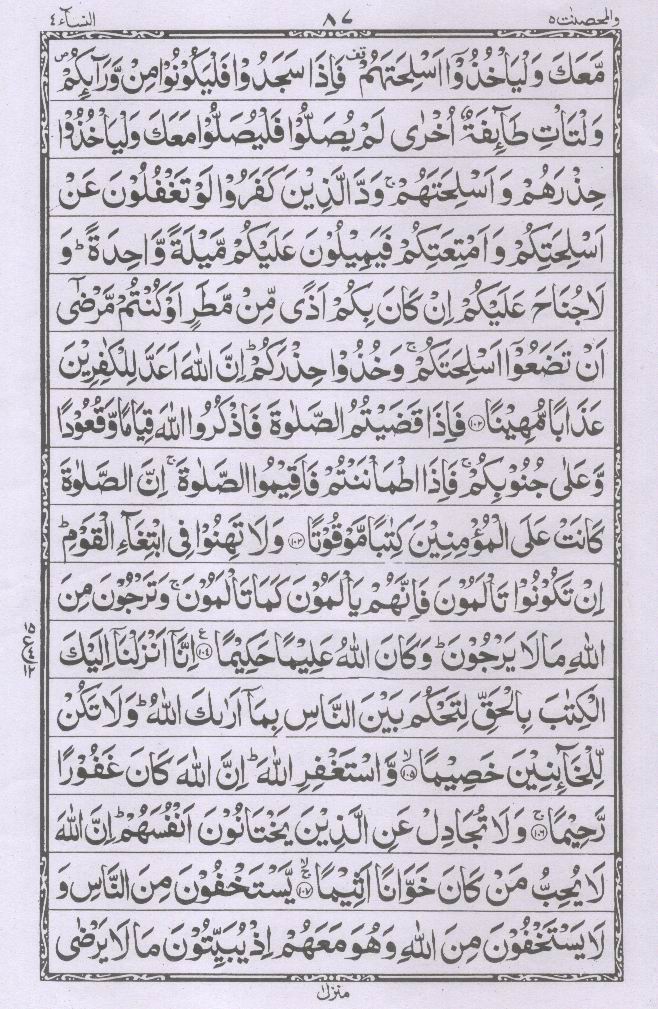 والمحصنٰت ٥ ٨٧ النسآء ٤
مَّعَكَ وَلْيَاْخُذُوْۤا اَسْلِحَتَهُمْ ۫ فَاِذَا سَجَدُوْا فَلْيَكُوْنُوْا مِنْ وَّرَآئِكُمْ ۪
وَلْتَاْتِ طَآئِفَةٌ اُخْرٰى لَمْ يُصَلُّوْا فَلْيُصَلُّوْا مَعَكَ وَلْيَاْخُذُوْا
حِذْرَهُمْ وَاَسْلِحَتَهُمْ ۚ وَدَّ الَّذِيْنَ كَفَرُوْا لَوْ تَغْفُلُوْنَ عَنْ
اَسْلِحَتِكُمْ وَاَمْتِعَتِكُمْ فَيَمِيْلُوْنَ عَلَيْكُمْ مَّيْلَةً وَّاحِدَةً ؕ وَ
لَا جُنَاحَ عَلَيْكُمْ اِنْ كَانَ بِكُمْ اَذًى مِّنْ مَّطَرٍ اَوْ كُنْتُمْ مَّرْضٰۤى
اَنْ تَضَعُوْۤا اَسْلِحَتَكُمْ ۚ وَخُذُوْا حِذْرَكُمْ ؕ اِنَّ اللّٰهَ اَعَدَّ لِلْكٰفِرِيْنَ
عَذَابًا مُّهِيْنًا ۝١٠٢ فَاِذَا قَضَيْتُمُ الصَّلٰوةَ فَاذْكُرُوا اللّٰهَ قِيَامًا وَّقُعُوْدًا
وَّعَلٰى جُنُوْبِكُمْ ۚ فَاِذَا اطْمَاْنَنْتُمْ فَاَقِيْمُوا الصَّلٰوةَ ۚ اِنَّ الصَّلٰوةَ
كَانَتْ عَلَى الْمُؤْمِنِيْنَ كِتٰبًا مَّوْقُوْتًا ۝١٠٣ وَلَا تَهِنُوْا فِى ابْتِغَآءِ الْقَوْمِ ؕ
اِنْ تَكُوْنُوْا تَاْلَمُوْنَ فَاِنَّهُمْ يَاْلَمُوْنَ كَمَا تَاْلَمُوْنَ ۚ وَتَرْجُوْنَ مِنَ
اللّٰهِ مَا لَا يَرْجُوْنَ ؕ وَكَانَ اللّٰهُ عَلِيْمًا حَكِيْمًا ۝١٠٤ ع اِنَّاۤ اَنْزَلْنَاۤ اِلَيْكَ
الْكِتٰبَ بِالْحَقِّ لِتَحْكُمَ بَيْنَ النَّاسِ بِمَاۤ اَرٰىكَ اللّٰهُ ؕ وَلَا تَكُنْ
لِّلْخَآئِنِيْنَ خَصِيْمًا ۙ۝١٠٥ وَّاسْتَغْفِرِ اللّٰهَ ؕ اِنَّ اللّٰهَ كَانَ غَفُوْرًا
رَّحِيْمًا ۚ۝١٠٦ وَلَا تُجَادِلْ عَنِ الَّذِيْنَ يَخْتَانُوْنَ اَنْفُسَهُمْ ؕ اِنَّ اللّٰهَ
لَا يُحِبُّ مَنْ كَانَ خَوَّانًا اَثِيْمًا ۚۙ۝١٠٧ يَّسْتَخْفُوْنَ مِنَ النَّاسِ وَ
لَا يَسْتَخْفُوْنَ مِنَ اللّٰهِ وَهُوَ مَعَهُمْ اِذْ يُبَيِّتُوْنَ مَا لَا يَرْضٰى
منزل ١